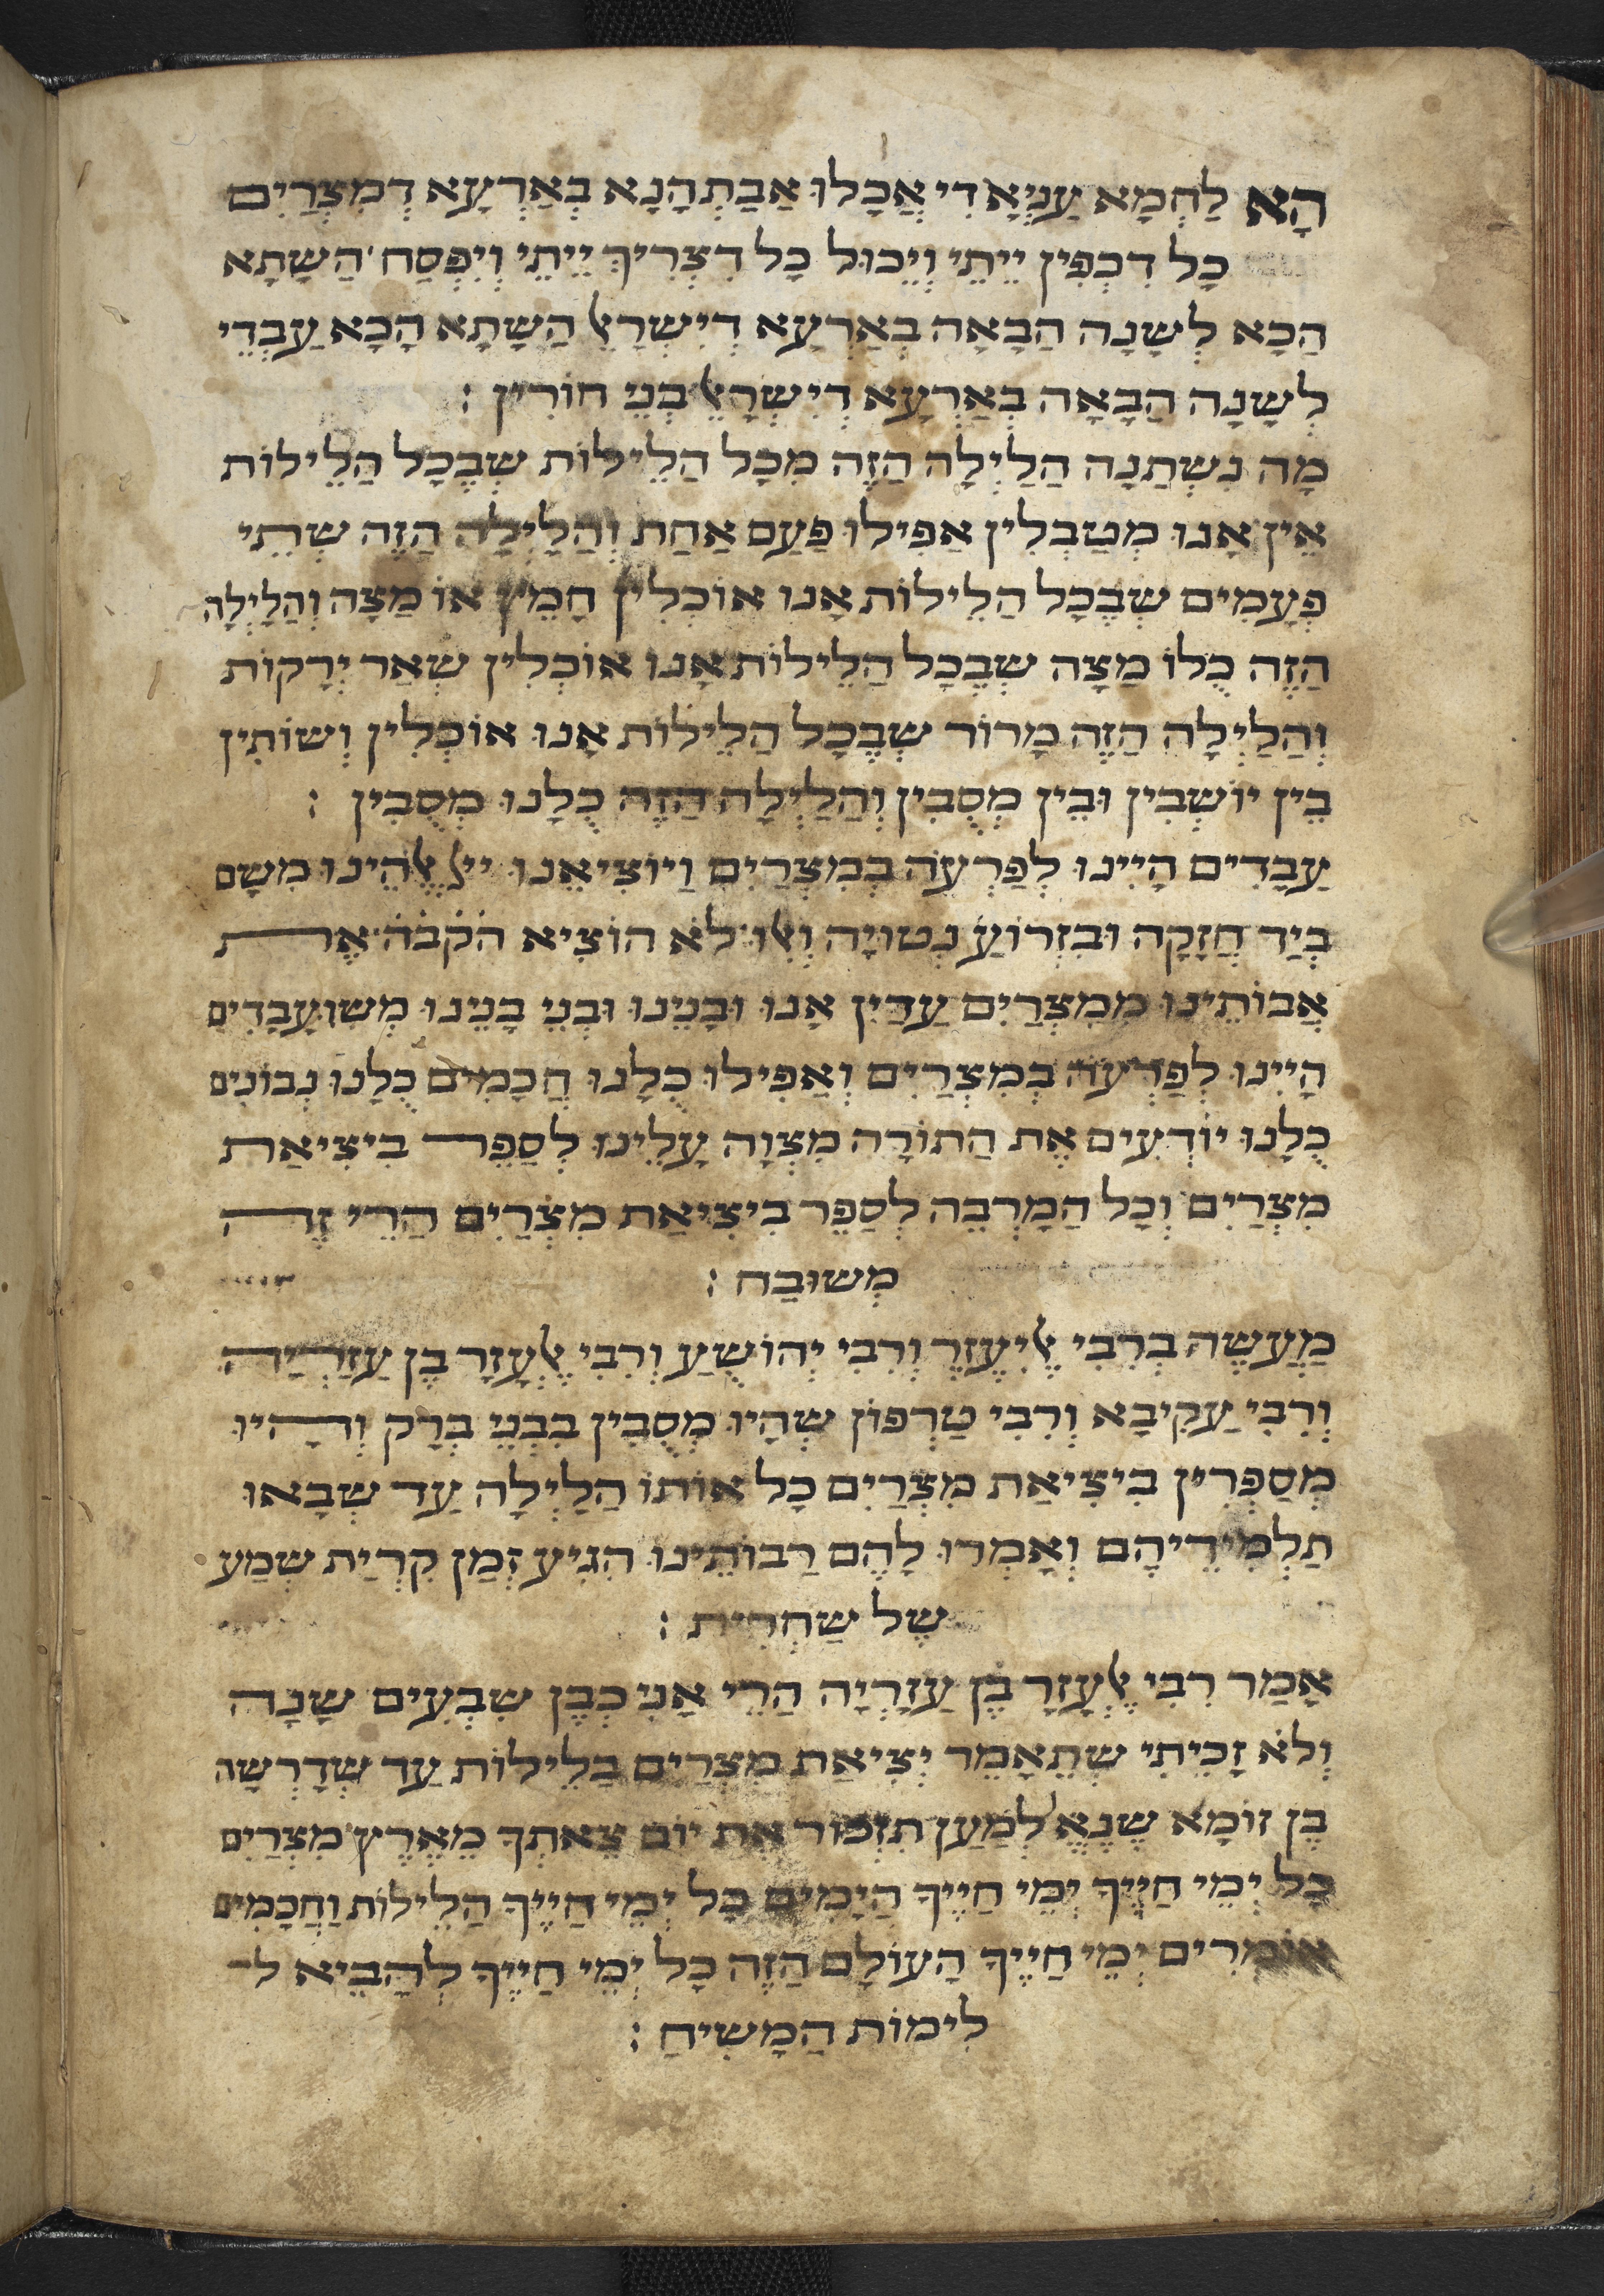 הָא לַחְמָא עַנְיָאָ דִי אֲכָלוּ אַבַתְהָנָא בְאַרְעָא דְמִצְרַיִם
כָל דִכְפִין יֵיתֵי וְיֵכוּל כָל דִצְרִיךְ יֵיתֵי וְיִפְסַח הַשָתָא
הַכָא לְשָנָה הַבָאָה בְאַרְעָא דְיִשְרָאֵל הַשָתָא הָכָא עַבְדֵי
לְשָנָה הַבָאָה בְאַרְעָא דְיִשְרָאֵל בְנֵי חוֹרִין :
מָה נִשְתַנָה הַלַיְלָה הַזֶה מִכָל הַלֵילוֹת שְבֶכָל הַלֵילוֹת
אֵין אָנוּ מְטַבְלִין אַפִילוּ פַעַם אַחַת וְהַלַיְלָה הַזֶה שְתֵי
פְעָמִים שְבֶכָל הַלֵילוֹת אָנוּ אוֹכְלִין חָמֵץ אוֹ מַצָה וְהַלַיְלָה
הַזֶה כֻלוֹ מַצָה שְבֶכָל הַלֵילוֹת אָנוּ אוֹכְלִין שְאַר יְרָקוֹת
וְהַלַיְלָה הַזֶה מָרוֹר שְבֶכָל הַלֵילוֹת אָנוּ אוֹכְלִין וְשוֹתִין
בֵין יוֹשְבִין וּבֵין מְסֻבִין וְהַלַיְלָה הַזֶה כֻלָנוּ מְסֻבִין :
עַבָדִים הָיִינוּ לְפַרְעֹה בְמִצְרַיִם וַיוֹצִיאֵנוּ ייְ אֱלֹהֵינוּ מִשָם
בְיַד חֲזָקָה וּבִזְרוֹעַ נְטוּיָה וְאִלוּ לֹא הוֹצִיא הֹקֹבֹהֹ אֶת
אֲבוֹתֵינוּ מִמִצְרַיִם עַדַיִן אָנוּ וּבָנֵינוּ וּבְנֵי בָנֵינוּ מְשוּעֲבָדִים
הָיִינוּ לְפַרְעֹה בְמִצְרַיִם וְאַפִילוּ כֻלָנוּ חֲכָמִים כֻלָנוּ נְבוֹנִים
כֻלָנוּ יוֹדְעִים אֶת הַתוֹרָה מִצְוָה עָלֵינוּ לְסַפֵר בִיצִיאַת
מִצְרַיִם וְכָל הַמַרְבֶה לְסַפֵר בִיצִיאַת מִצְרַיִם הֲרֵי זֶה
מְשוּבַח :
מַעֲשֶה בְרִבִי אֱלִיעֶזֶר וְרִבִי יְהוֹשֻעַ וְרִבִי אֶלְעָזָר בֶן עַזַרְיָה
וְרִבִי עַקִיבָא וְרִבִי טַרְפוֹן שְהָיוּ מְסֻבִין בִבְנֵי בְרָק וְהָיוּ
מְסַפְרִין בִיצִיאַת מִצְרַיִם כָל אוֹתוֹ הַלַיְלָה עַד שְבָאוּ
תַלְמִידֵיהֶם וְאָמְרוּ לָהֶם רַבוֹתֵינוּ הִגִיעַ זְמַן קִרְיַת שְמַע
שֶל שַחְרִית :
אָמַר רִבִי אֶלְעָזָר בֶן עַזַרְיָה הֲרֵי אֲנִי כְבֶן שִבְעִים שָנָה
וְלֹא זָכִיתִי שְתֵאָמֵר יְצִיאַת מִצְרַיִם בַלֵילוֹת עַד שְדָרְשָה
בֶן זוֹמָא שֶנֶאֱ לְמַעַן תִזְכוֹר אֶת יוֹם צֵאתְךָ מֵאֶרֶץ מִצְרַיִם
כָל יְמֵי חַיֶיךָ יְמֵי חַיֶיךָ הַיָמִים כָל יְמֵי חַיֶיךָ הַלֵילוֹת וַחֲכָמִים
אוֹמְרִים יְמֵי חַיֶיךָ הָעוֹלָם הַזֶה כָל יְמֵי חַיֶיךָ לְהָבִיא ל
לִימוֹת הַמָשִיחַ :